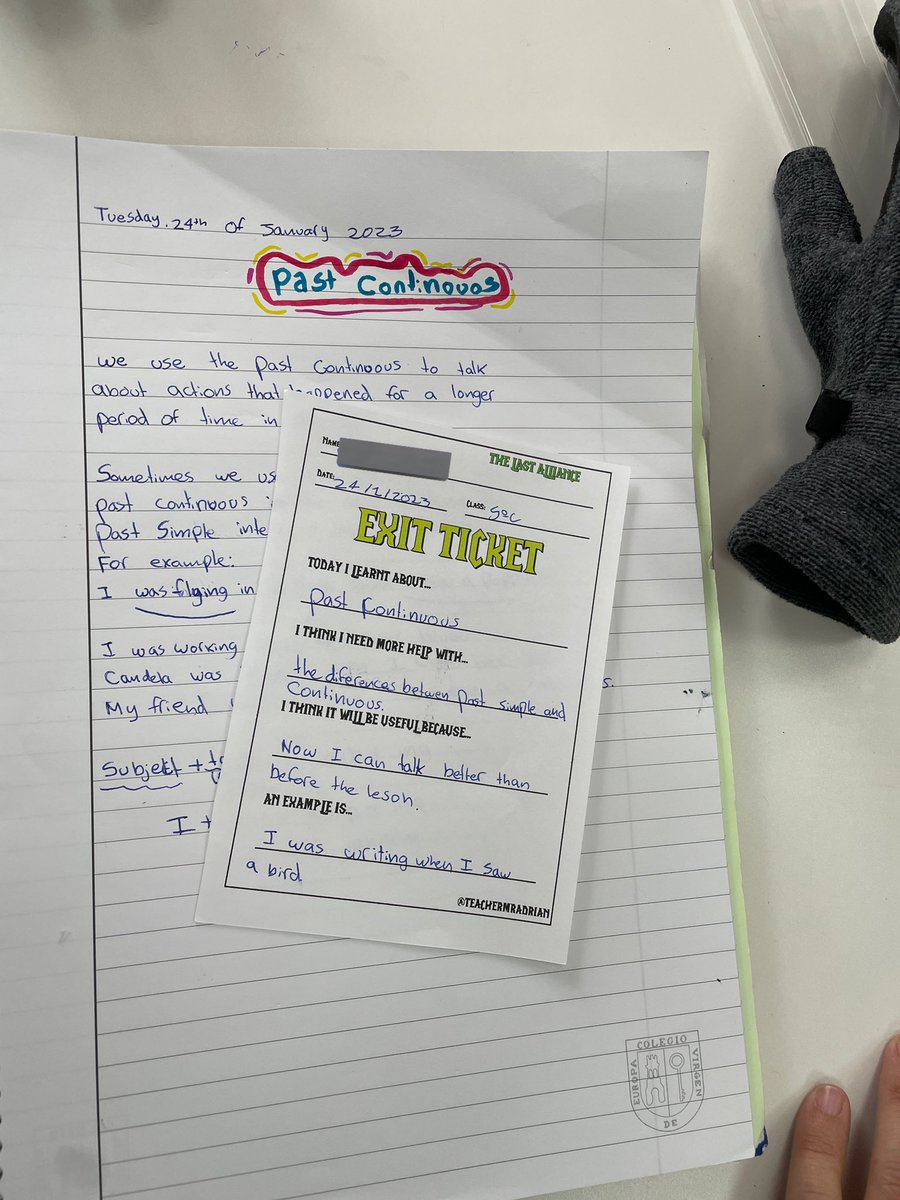 Tuesday, 24th of January 2023
Past Continouos
We use the Past Continuous to talk
about actions that happened for a longer
period of time in
Sometimes we us
past continuous
Past Simple inte
For example:
I was flying in
I was working
Candela was
s.
My friend
Subject +
I +
NAME:
THE LAST ALLIANCE
DATE: 24/1/2023
CLASS:
EXIT TICKET
TODAY I LEARNT ABOUT...
Past Continuous
I THINK I NEED MORE HELP WITH...
the diferences betwen Past simple and
Continuous.
I THINK IT WILL BE USEFUL BECAUSE...
Now I can talk better than
before the leson.
AN EXAMPLE IS...
I was writing when I saw
a bird
@TEACHERMRADRIAN
COLEGIO
VIRGEN
DE
EUROPA